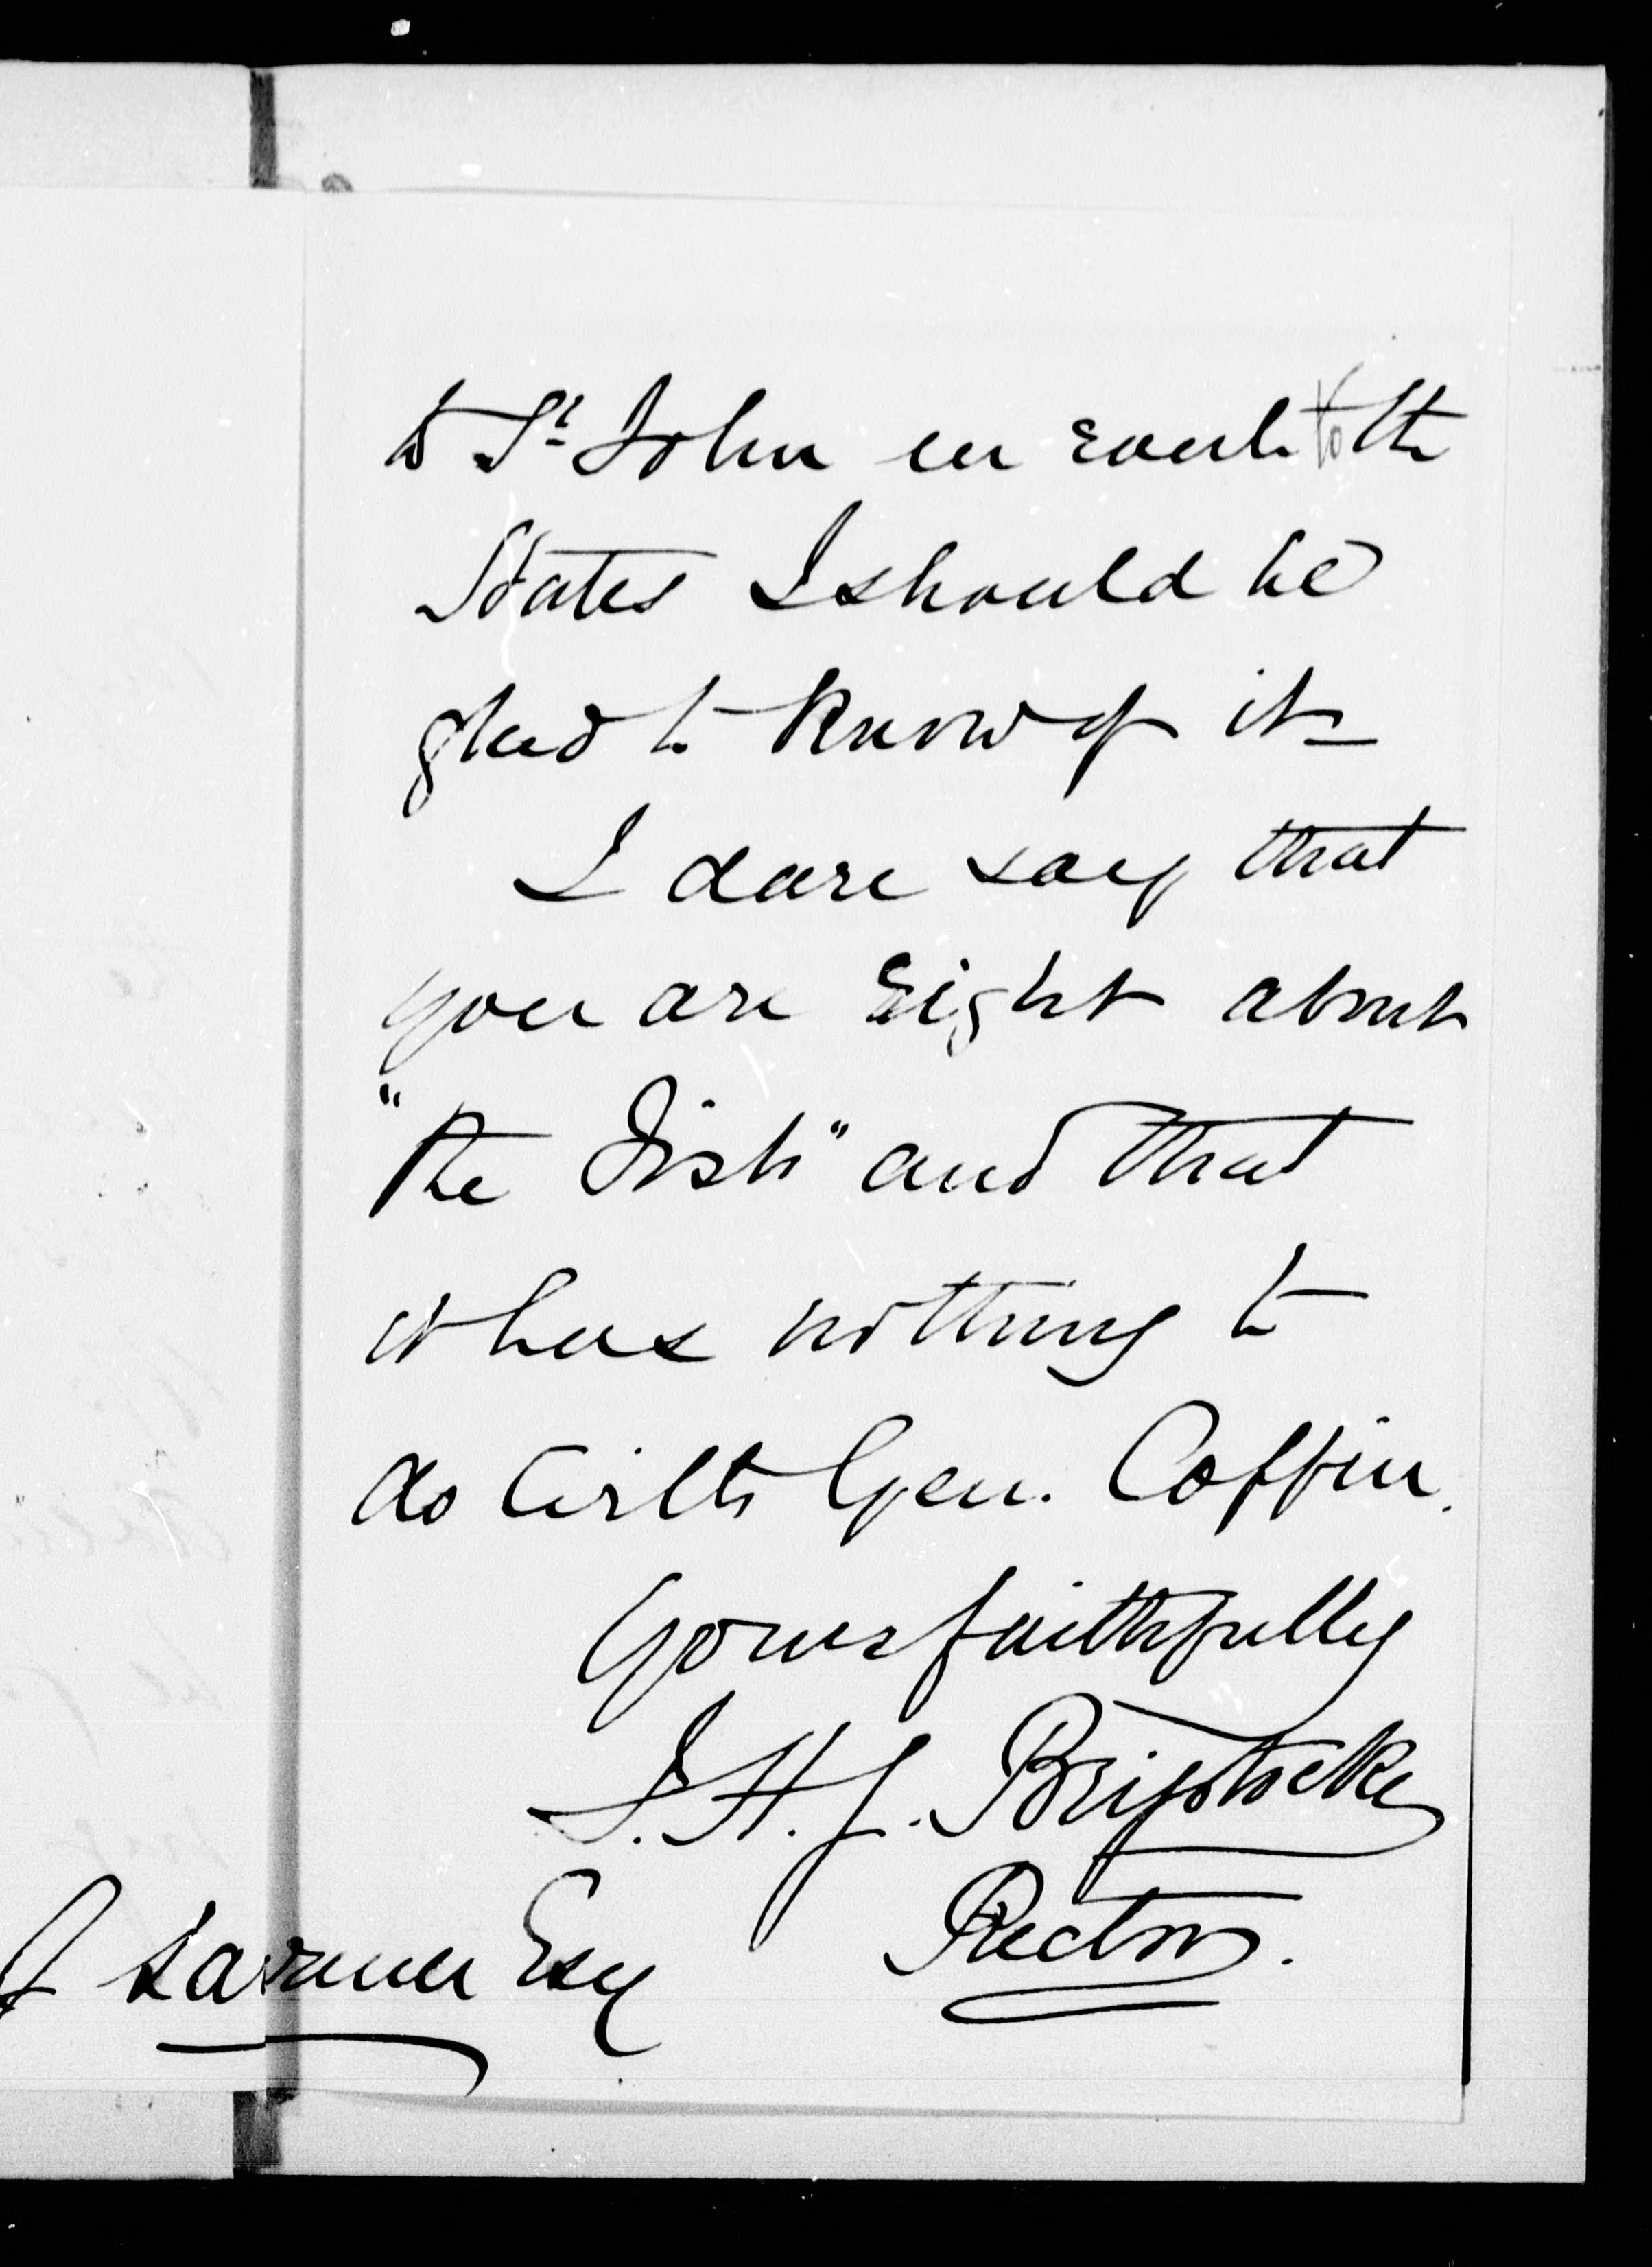 to St John en route to the
States I should be
glad to know of it–
I dare say that
you are right about
"the Dish" and that
it has nothing to
do with Gen. Coffin.
Yours faithfully
F. H. J. Brigstocke
Rector.
J Hannay Esq